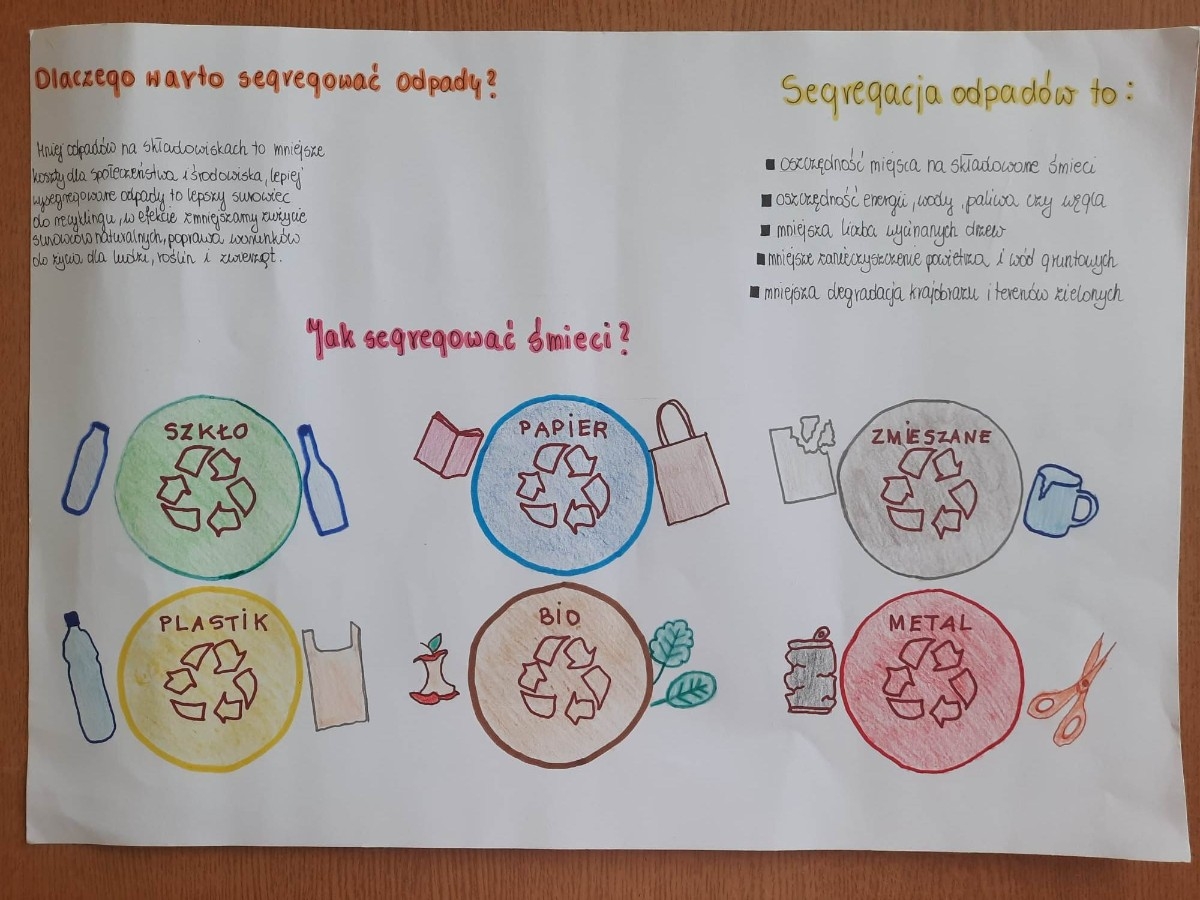 Dlaczego warto segregować odpady?
Mniej odpadów na składowiskach to mniejsze
koszty dla społeczeństwa i środowiska, lepiej
wysegregowane odpady to lepszy surowiec
do recyklingu, w efekcie zmniejszamy zużycie
surowców naturalnych, poprawa warunków
do życia dla ludzi, roślin i zwierząt.
Segregacja odpadów to:
▪ oszczędność miejsca na składowane śmieci
▪ oszczędność energii, wody, paliwa czy węgla
▪ mniejsza liczba wycinanych drzew
▪ mniejsze zanieczyszczenie powietrza i wód gruntowych
▪ mniejsza degradacja krajobrazu i terenów zielonych
Jak segregować śmieci?
SZKŁO
PAPIER
ZMIESZANE
PLASTIK
BIO
METAL